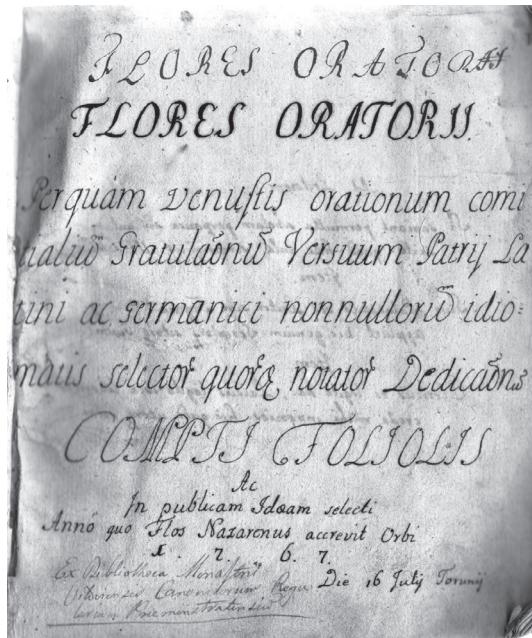 FLORES ORATORII
FLORES ORATORII.
Perquám venustis orationum comi
tialiū Gratulaōnū Versuum Patrij La
tini ac germanici nonnulloriū idio=
matis selector quorq notator Dedicaōnū
COMPTI FOLIOLIS
Ac
In publicam Idæam selecti
Annô quo Flos Nazarenus accrevit Orbi
1. 7. 6. 7.
Die 16 Julij Torunij
Ex Bibliotheca Monastrii
Vitoviensis Canonicorum Regu
larium Praemonstratensiu